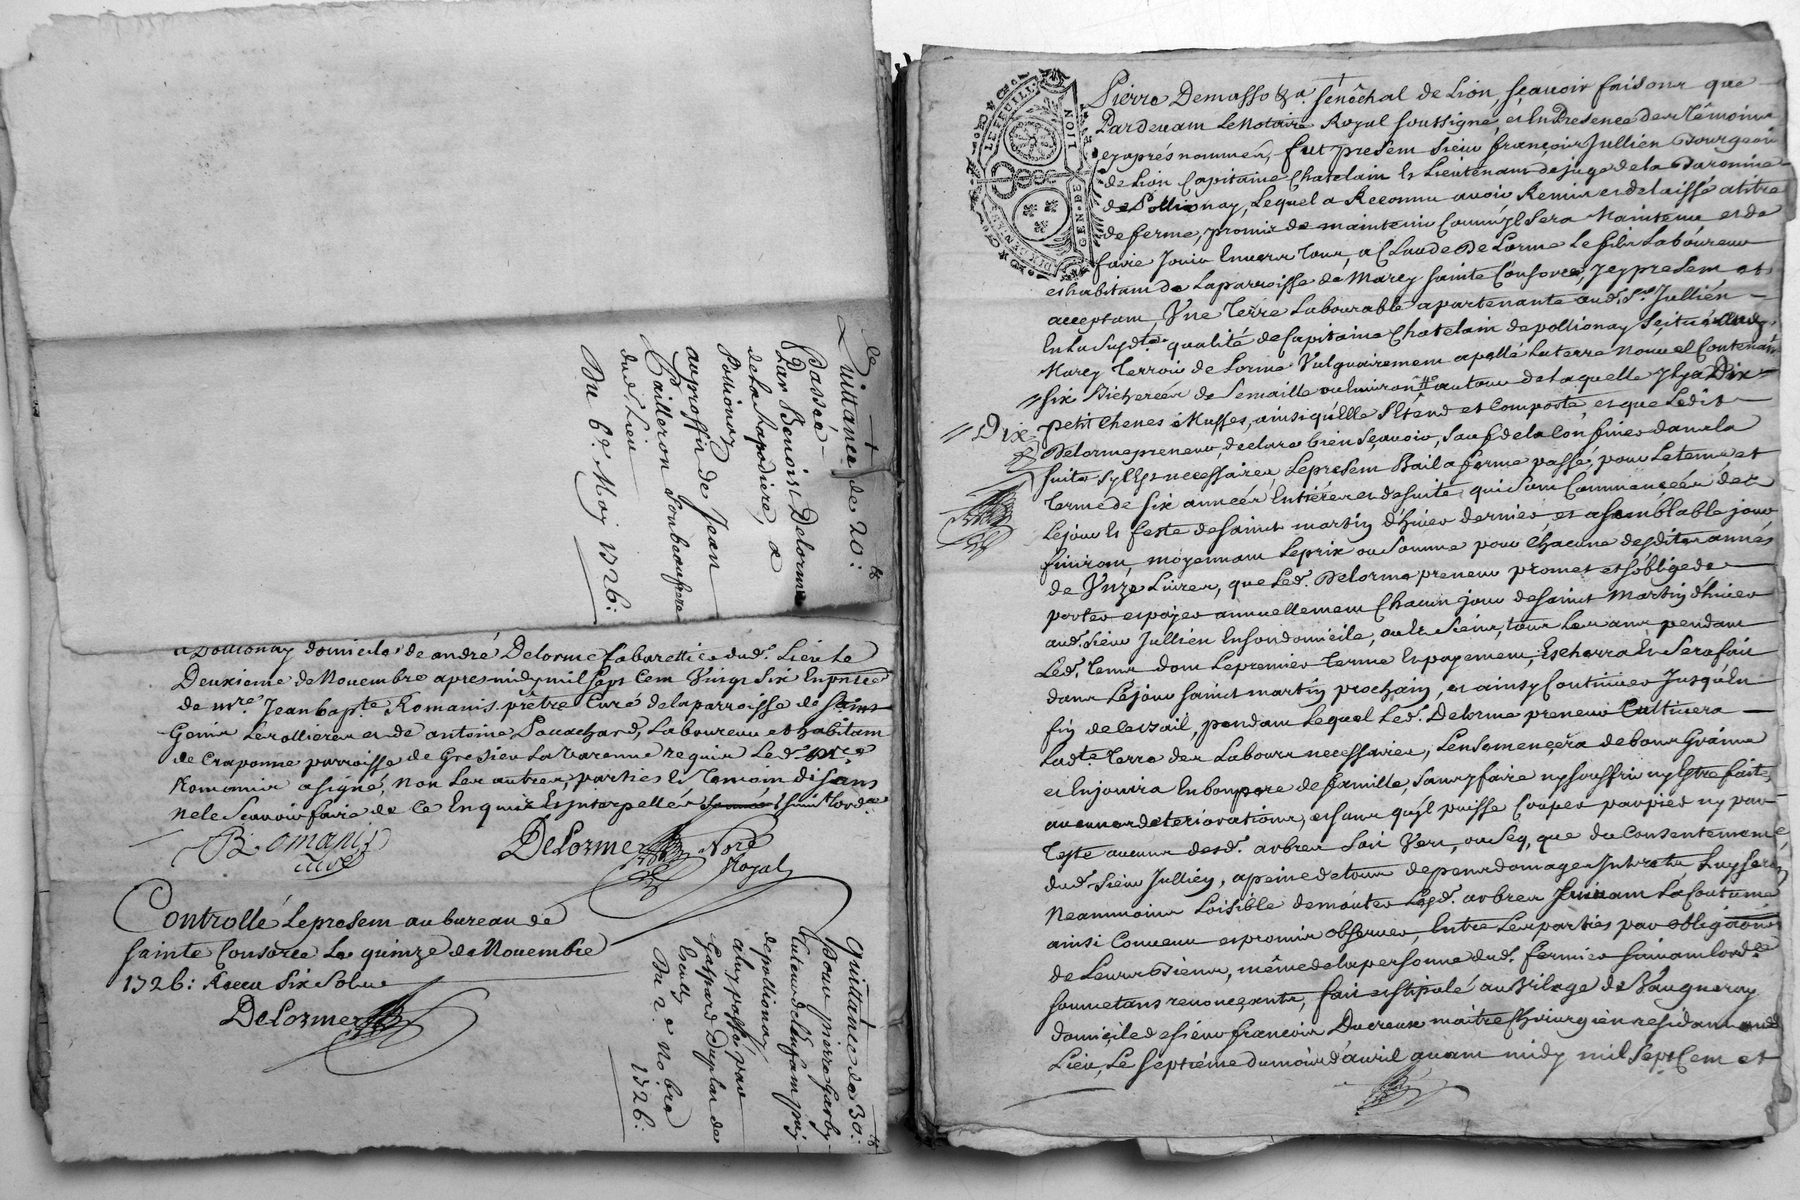 Quittance de 20: ₶
Passée
Par Benoist Delorme
de la hapodiere, a
Pollionay
au proffit de Jean
Bailleron Son beaufrere
dud. Lieu
Du 6e. May 1726:
a Pollionay domicile de andré Delorme Cabarettier dud. Lieu Le
Deuxieme de Novembre apres midy mil Sept Cent Vingt Six En pnce
de mre. Jean bapte. Romanis prêtre Curé de la parroisse de Saint
Genis Les ollieres et de antoine Laboureur et habitant
de Craponne parroisse de Gresieu La Varenne requis Led. mre.
Romanis a signé, non Les autres, parties et Temoin disans
ne le Scavoir faire de Ce Enquis Et Interpellés Suivt Lordce
B. omanis
Curé
DeLorme Nore
Royal
Controllé Le present au bureau de
sainte Consorce Le quinze de Novembre
1726: Receu Six Sols
DeLorme
Quittance de 30: ₶
Pour pierre Garby
de pollionay
a luy passé par
Gaspard Duplan de
Du 2e Nobre
1726:
GEN. DE LION
Pierre Demasso &a. Sénêchal de Lion, sçavoir faisons que
Pardevant Le Notaire Royal Soussigné, et En Presence des Têmoins
cy après nommés, fut present Sieur françois Jullien Bourgeois
de Lion Capitaine Chatelain Et Lieutenant de juge de la Baronnie
de Pollionay, Lequel a Reconnu avoir Remis et delaissé a titre
de ferme, promis de maintenir Comm'jl Sera Maintenu et de
faire Jouir Envers Tous, a Claude De Lorme Le fils Laboureur
et habitant de La parroisse de Marcy Sainte Consorce, Jcy present et
acceptant, Vne Terre Labourable apartenante aud. Sr. Jullién
En La Suydte. qualité de Capitaine Chatelain de pollionay Scituée aud.
Marcy Terroir de Lorme Vulguairement apellé La terre nouvel Contenant
Six Bicherées de Semaille ou Environ autour de Laquelle Jl ya Dix
// Dix petit Chenes é Musses, ainsi qu'elle S'étend et Comporte, et que Ledit
Delorme preneur, declare bien Sçavoir, Sauf de la Confiner dans la
Suite S'il Est necessaire, Le present Bail a ferme passé, pour Le tems et
Terme de Six années Entiéres et de suite qui Sont Commencées dez
Le jour Et feste de Saint martin d'hiver dernier et a Semblable jour
finiront, moyennant Le prix ou Somme pour Chacune desdites années
de Vnze Livres, que Led. Delorme preneur promet et s'oblige de
porter et payer annuellement Chacun jour de Saint Martin d'hiver
aud. Sieur Jullien En son domicile, ou Es Siens, tous Les ans pendant
Led. Tems dont Le premier Terme Et payement, Escherra Et Se rafait
dans Le jour Saint martin prochain, et ainsy Continuer Jusqu'En
fin de Ce Bail, pendant Lequel Led. Delorme preneur Cultivera
Ladte Terre des Labours necessaires, L'ensemencera de bons Grains
et En jouira En bon pere de famille, Sans y faire ny souffrir ny Estre faite
aucunes deteriorations, et sans qu'jl puisse Couper par pied ny par
Teste aucuns desd. arbres Soit Vert, ou Seq, que du Consentement
dud. Sieur Jullien, a peine de tous depens domages Intrets Luy sera
Neanmoins Loisible demonter Lesd. arbres Suivant La Coutume
ainsi Convenu et promis observer, Entre Les parties par obligations
de Leurs Biens, même de la personne dud. fermier Suivant Lordce
Soumetans renonçants, fait et stipulé au Vilage de Vaugneray
domicile de sieur françois Ducreux maitre Chirurgien residant aud.
Lieu, Le Septiéme du mois d'avril avant midy mil Sept Cent et